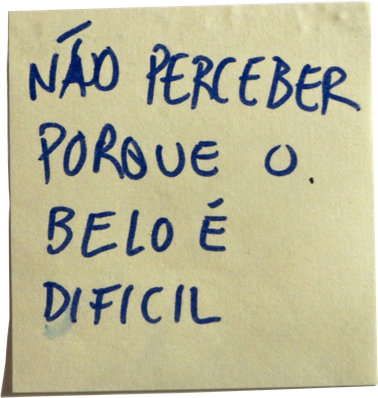 NÃO PERCEBER
PORQUE O
BELO É
DIFICIL